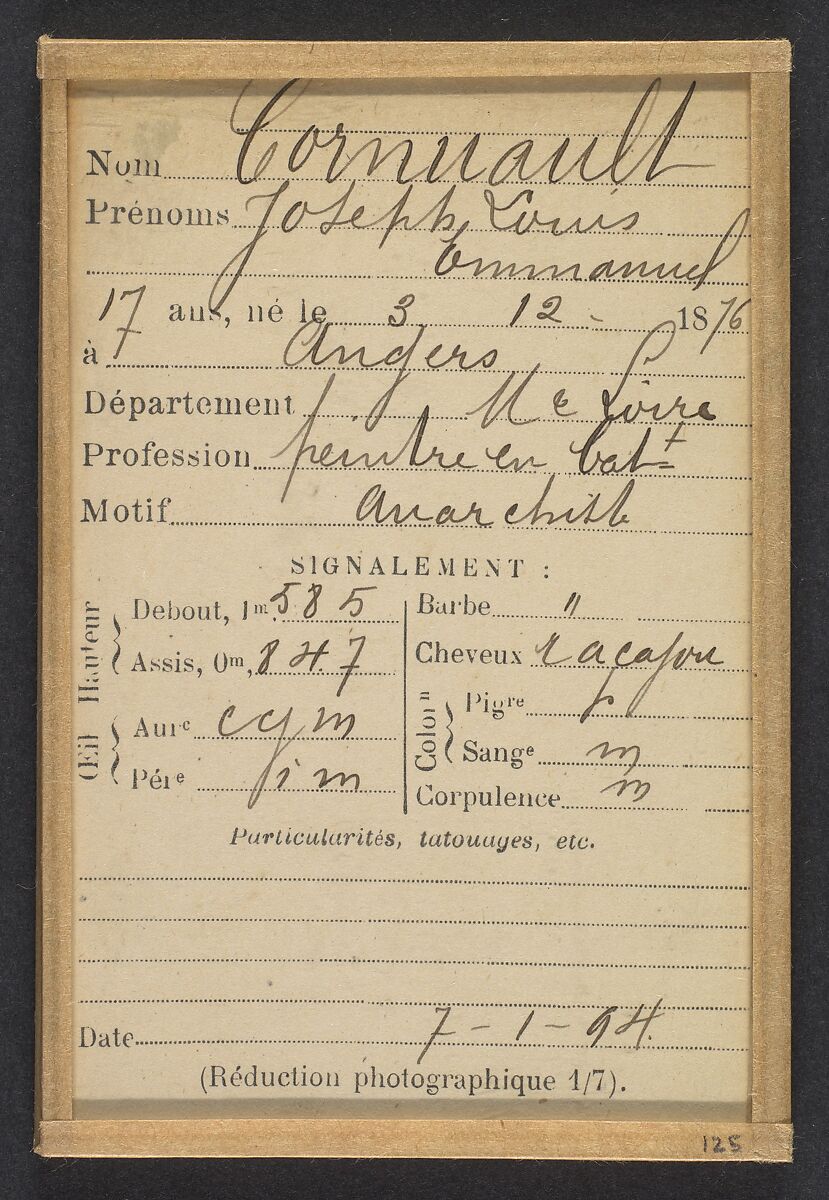 Nom Cornuault
Prénoms Joseph Louis
Emmanuel
17 ans, né le 3 12 - 1876
à Angers
Département Me Loire
Profession peintre en bat-t
Motif Anarchiste
SIGNALEMENT :
Hauteur
Debout, 1m 585
Assis, 0m, 847
Œil
Aure c g m
Pére i m
Barbe "
Cheveux r acajou
Colorn
Pigre p
Sange m
Corpulence m
Particularités, tatouages, etc.
Date 7 - 1 - 94.
(Réduction photographique 1/7).
125